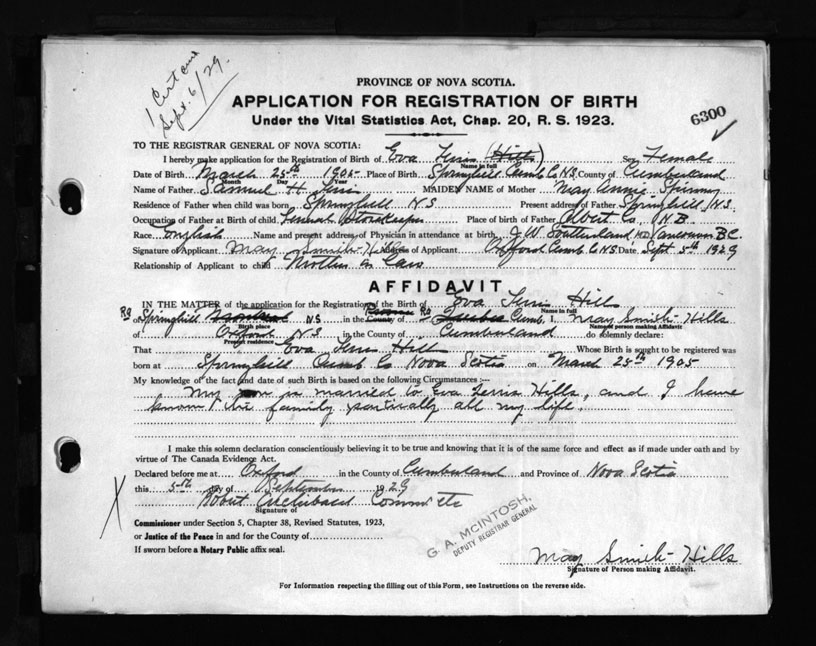 1 Cert
Sept. 6/29.
PROVINCE OF NOVA SCOTIA.
APPLICATION FOR REGISTRATION OF BIRTH
Under the Vital Statistics Act, Chap. 20, R. S. 1923.
6300
TO THE REGISTRAR GENERAL OF NOVA SCOTIA:
I hereby make application for the Registration of Birth of Eva Ferris (Hills) Sex Female
Name in full
Date of Birth March 25th 1905 Place of Birth Springhill Cumb. Co N.S. County of Cumberland
Month Day Year
Name of Father Samuel H. Ferris MAIDEN NAME of Mother May Annie Spinny
Residence of Father when child was born Springhill N S Present address of Father Springhill N.S.
Occupation of Father at Birth of child General Storekeeper Place of birth of Father Albert Co. N.B.
Race English Name and present address of Physician in attendance at birth J. W. Southerland MD Vancouver BC
Signature of Applicant May Smith-Hills Address of Applicant Oxford Cumb. Co N.S. Date Sept 5th 1929
Relationship of Applicant to child Mother in Law
AFFIDAVIT
IN THE MATTER of the application for the Registration of the Birth of Eva Ferris Hills
Name in full
of Springhill Montreal N S in the County of Quebec Cumb. I, May Smith-Hills
Birth place Name of person making Affidavit
of Oxford N S in the County of Cumberland do solemnly declare:
Present residence
That Eva Ferris Hills Whose Birth is sought to be registered was
born at Springhill Cumb. Co Nova Scotia on March 25th 1905
My knowledge of the fact and date of such Birth is based on the following Circumstances:—
My son is married to Eva Ferris Hills, and I have
known the family partically all my life.
I make this solemn declaration conscientiously believing it to be true and knowing that it is of the same force and effect as if made under oath and by
virtue of The Canada Evidence Act.
Declared before me at Oxford in the County of Cumberland and Province of Nova Scotia
this 5th day of September 1929
Robert Archibald Comm etc
Signature of
Commissioner under Section 5, Chapter 38, Revised Statutes, 1923,
or Justice of the Peace in and for the County of
If sworn before a Notary Public affix seal.
G. A. McINTOSH,
DEPUTY REGISTRAR GENERAL
May Smith-Hills
Signature of Person making Affidavit.
For Information respecting the filling out of this Form, see Instructions on the reverse side.